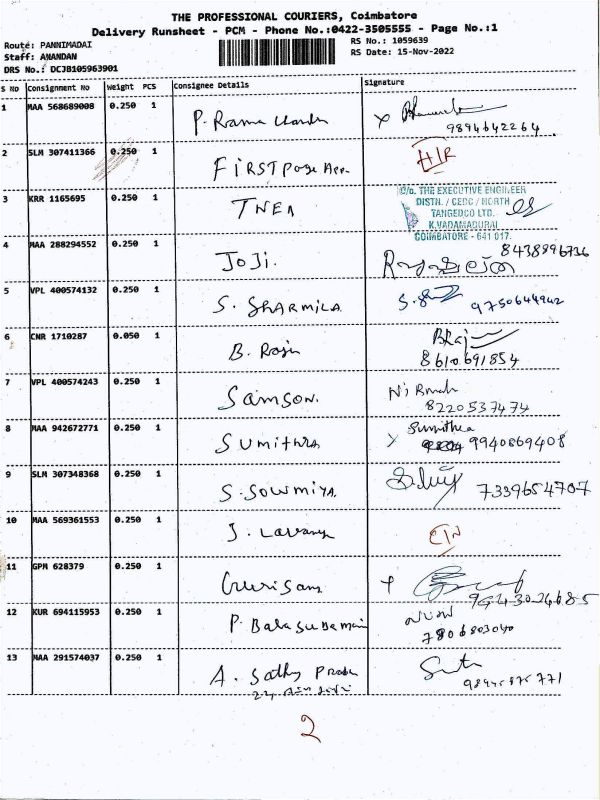 THE PROFESSIONAL COURIERS, Coimbatore
Delivery Runsheet - PCM - Phone No.:0422-3505555 - Page No.:1
Route: PANNIMADAI
RS No.: 1059639
Staff: ANANDAN
RS Date: 15-Nov-2022
DRS No.: DCJB105963901
S No Consignment No Weight PCS Consignee Details Signature
1 MAA 568689008 0.250 1 P. Rama Chandra
9894642264
2 SLM 307411366 0.250 1 FIRST Page
3 KRR 1165695 0.250 1 TNEA
O/o. THE EXECUTIVE ENGINEER
DISTN. / CEDC / NORTH
TANGEDCO LTD.
K.VADAMADURAI
COIMBATORE - 641 017.
4 MAA 288294552 0.250 1 JOJI.
8438896736
5 VPL 400574132 0.250 1 S. SHARMILA
9750644942
6 CNR 1710287 0.050 1 B. Raju
BRaj
8610691854
7 VPL 400574243 0.250 1 SAMSON.
8220537474
8 MAA 942672771 0.250 1 Sumithra
Sumithra
9940869408
9 SLM 307348368 0.250 1 S. SOWMIYA.
7339654707
10 MAA 569361553 0.250 1 J. Lavanya
11 GPM 628379 0.250 1
12 KUR 694115953 0.250 1 P. Balasubamani
7806803040
13 MAA 291574037 0.250 1 A. Sathy Prabu
2